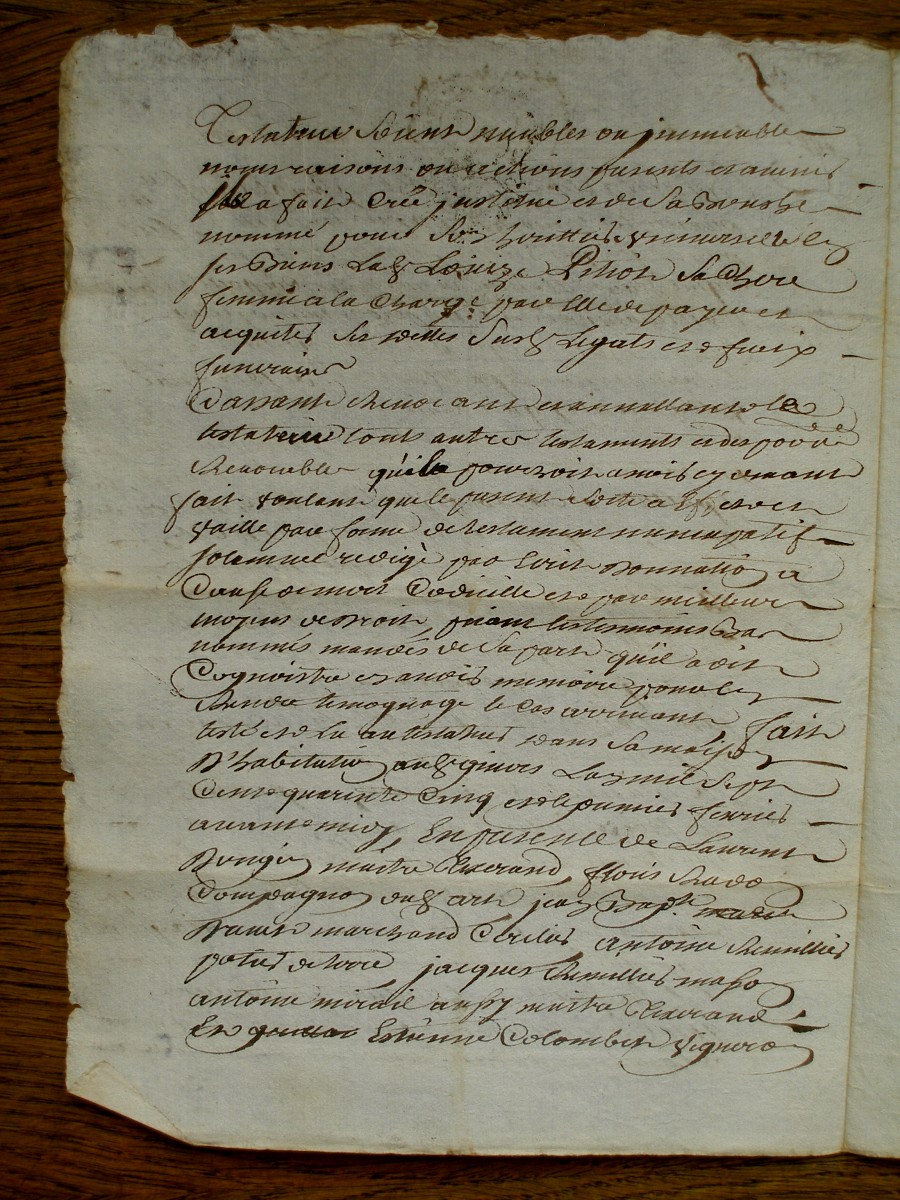 Testateur soient meubles ou immeubles
noms raisons ou actions presents et avenir
il a fait Créé institué et de sa bouche
nommé pour son herittiere universelle
ses biens Lad Louize Pitiot sa Chere
femme a la Charge par Elle de payer et
acquiter ses dettes susd Legats et frais
funeraires
Cassant revocant et annullant le
testateur touts autres testaments et
qu'il pourroit avoir cy devant
fait voulant que le present sorte a Effet et
vaille par forme de testament nuncupatif
solemnel redigé par Ecrit donnation a
Cause de mort Codicille et par meilleurs
moyens de Droit priant les temoins bas
nommés mandés de sa part qu'il a dit
Cognoistre et avoir memoire pour le
Rendre temognage le Cas arrivant fait
et Lu au testateur dans sa maison
D'habitation aud Lan mil sept
Cent quarente Cinq et le premier fevrier
avant midy En presence de Laurent
maitre
Compagnon dud art jean Bapt.
marchand Antoine
potier de terre jacques masson
antoine mirail aussy maitre
Estienne Colombet vigneron